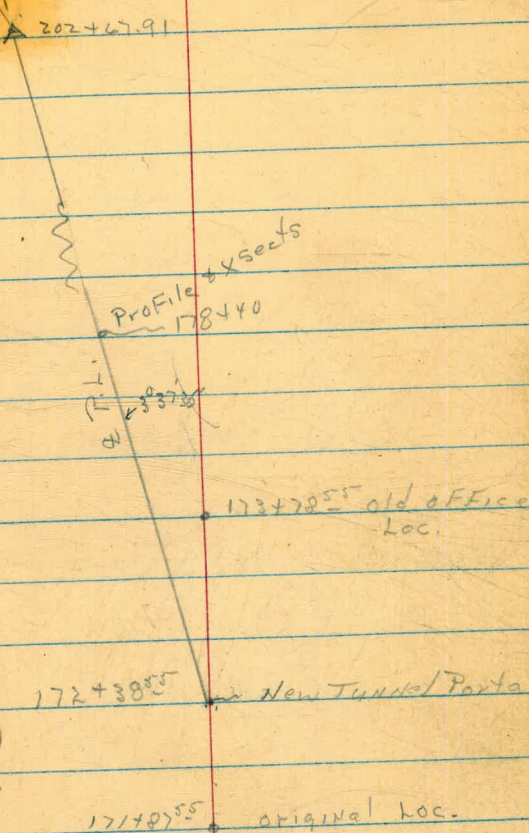 202+67.91
Profile & X sects
178+40
3°37'30"
173+78⁵⁵ old office
Loc.
172+38⁵⁵ New Tunnel Porta
171+87⁵⁵ original Loc.